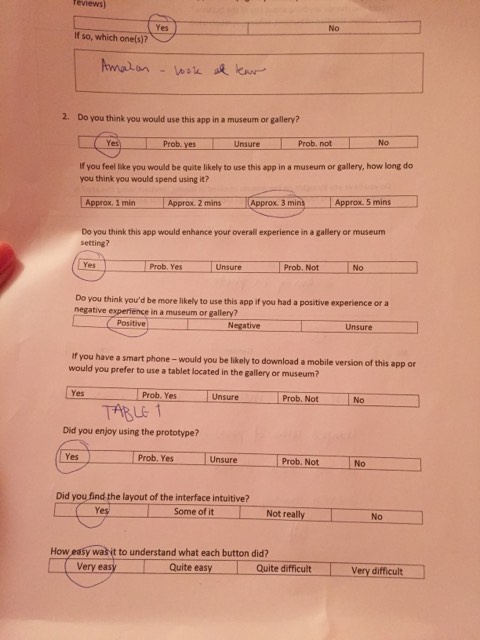 reviews)
Yes No
If so, which one(s)?
Amazon - look at
2. Do you think you would use this app in a museum or gallery?
Yes Prob. yes Unsure Prob. not No
If you feel like you would be quite likely to use this app in a museum or gallery, how long do
you think you would spend using it?
Approx. 1 min Approx. 2 mins Approx. 3 mins Approx. 5 mins
Do you think this app would enhance your overall experience in a gallery or museum
setting?
Yes Prob. Yes Unsure Prob. Not No
Do you think you'd be more likely to use this app if you had a positive experience or a
negative experience in a museum or gallery?
Positive Negative Unsure
If you have a smart phone – would you be likely to download a mobile version of this app or
would you prefer to use a tablet located in the gallery or museum?
Yes Prob. Yes Unsure Prob. Not No
TABLET
Did you enjoy using the prototype?
Yes Prob. Yes Unsure Prob. Not No
Did you find the layout of the interface intuitive?
Yes Some of it Not really No
How easy was it to understand what each button did?
Very easy Quite easy Quite difficult Very difficult